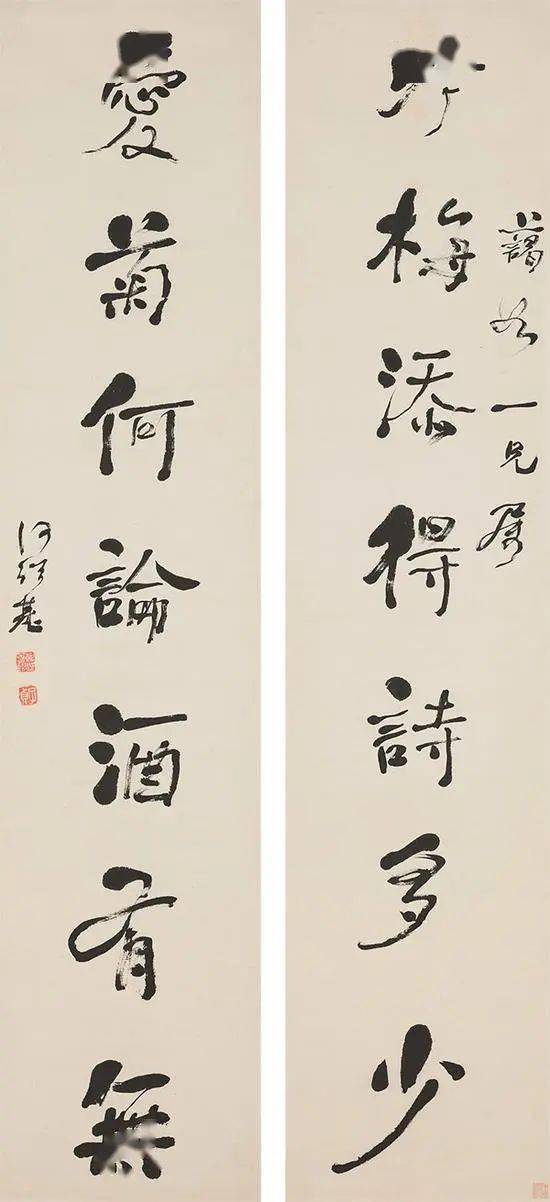 梅添得詩多少
藹如一兄屬
愛菊何論酒有無
何紹基